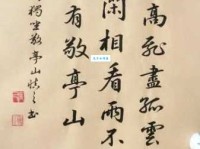 高飛盡孤雲
閑相看兩不
有敬亭山
獨坐敬亭山